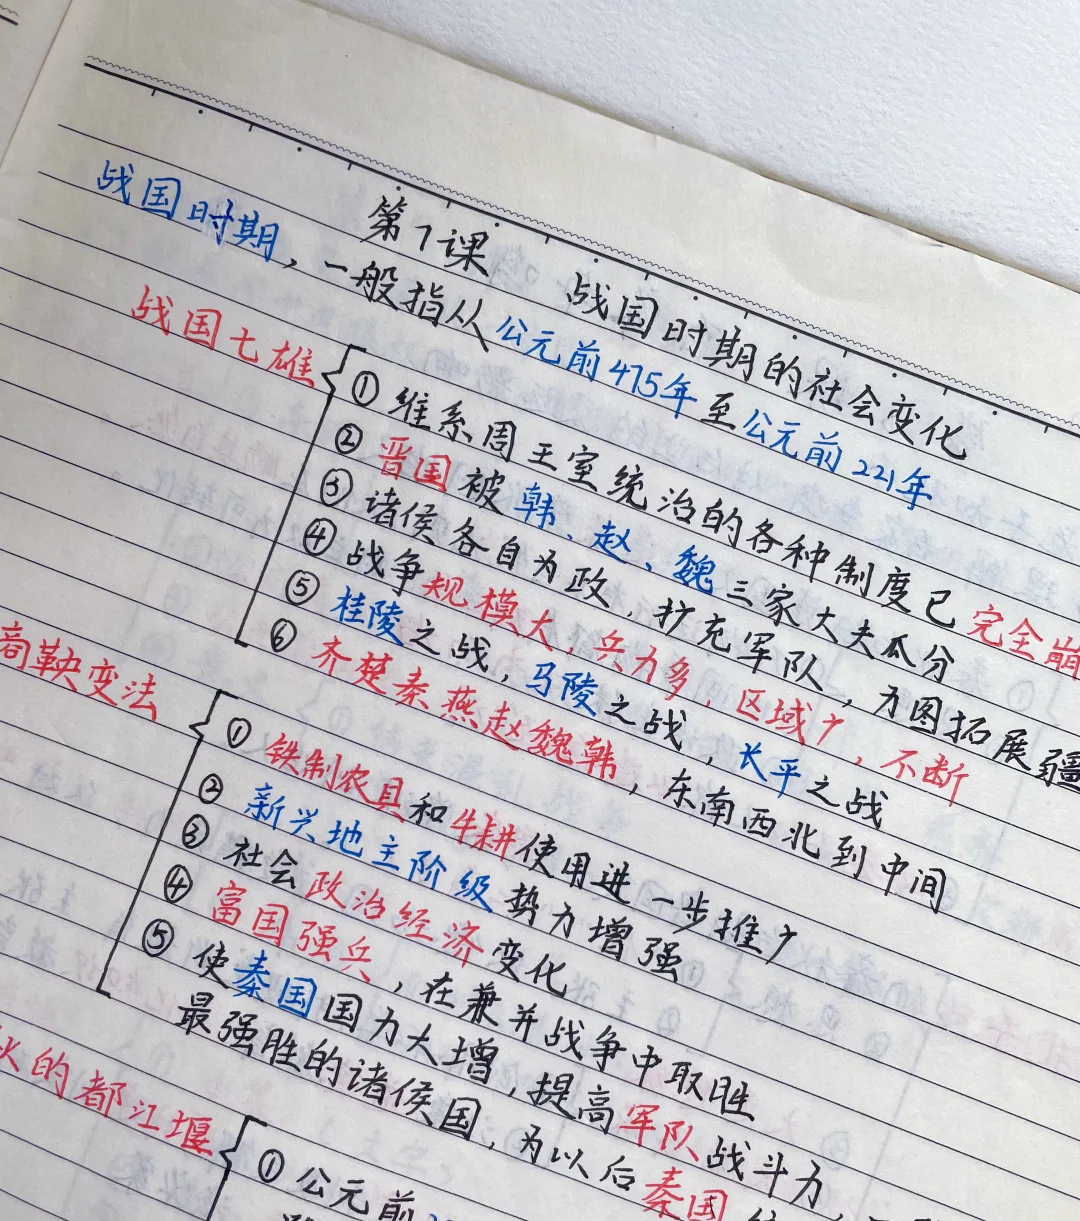 第7课 战国时期的社会变化
战国时期，一般指从公元前475年至公元前221年
战国七雄
①维系周王室统治的各种制度已完全崩
②晋国被韩、赵、魏三家大夫瓜分
③诸侯各自为政，扩充军队，力图拓展疆
④战争规模大，兵力多，区域广，不断
⑤桂陵之战，马陵之战，长平之战
⑥齐楚秦燕赵魏韩，东南西北到中间
商鞅变法
①铁制农具和牛耕使用进一步推广
②新兴地主阶级势力增强
③社会政治经济变化
④富国强兵，在兼并战争中取胜
⑤使秦国国力大增，提高军队战斗力，
最强胜的诸侯国，为以后秦国
的都江堰
①公元前